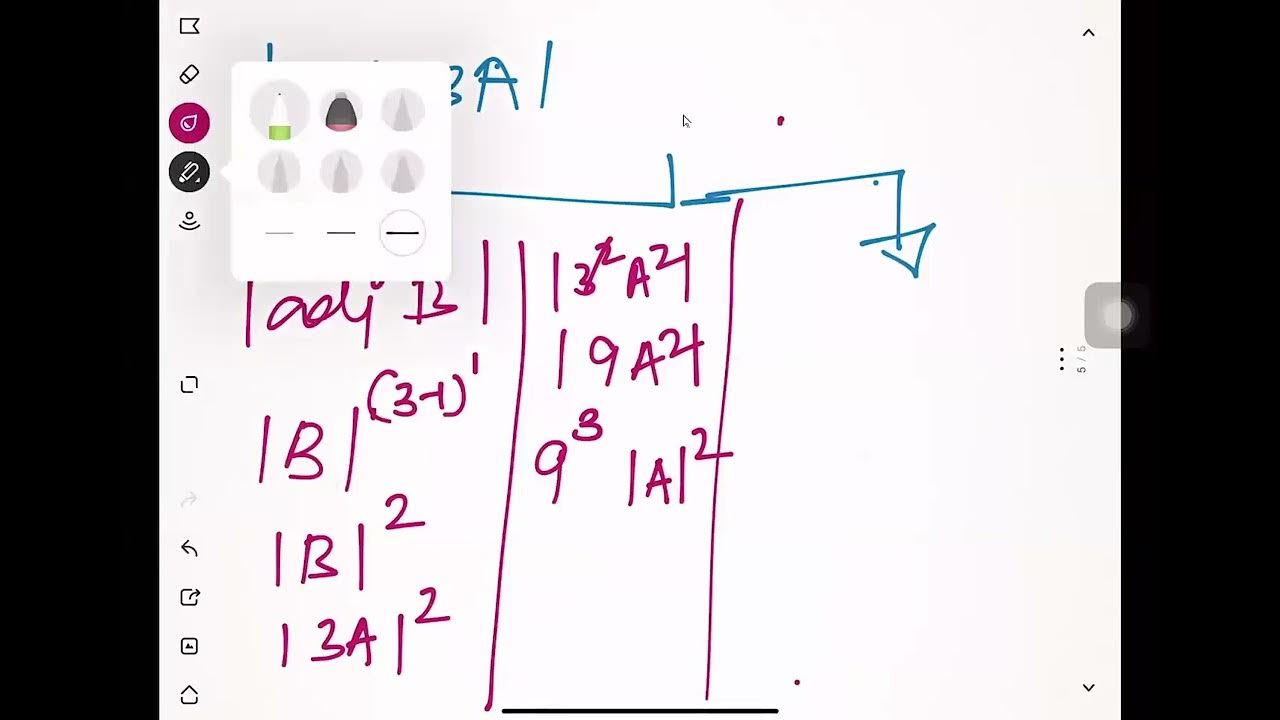 3A|
|adj B|
|B|^(3-1)'
|B|^2
|3A|^2
|3^2 A^2|
|9A^2|
9^3 |A|^2
5 / 5